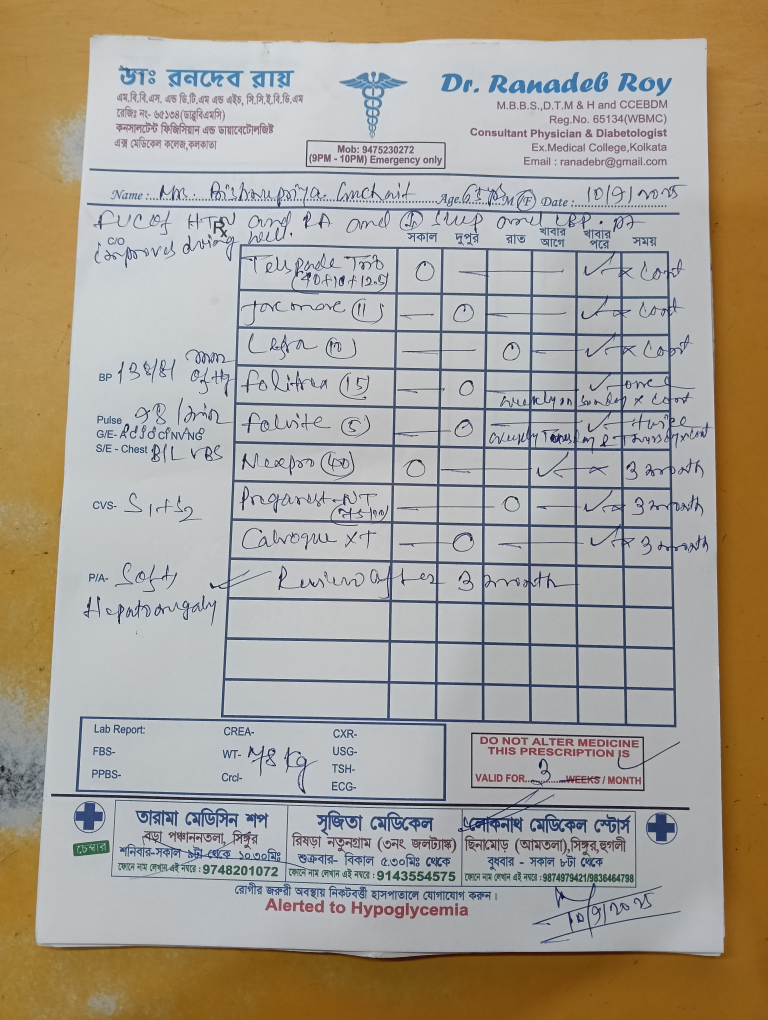 ডাঃ রনদেব রায়
এম.বি.বি.এস. এন্ড ডি.টি.এম এন্ড এইচ, সি.সি.ই.বি.ডি.এম
রেজিঃ নং- ৬৫১৩৪(ডাব্লুবিএমসি)
কনসালটেন্ট ফিজিসিয়ান এন্ড ডায়াবেটোলজিষ্ট
এক্স মেডিকেল কলেজ,কলকাতা
Mob: 9475230272
(9PM - 10PM) Emergency only
Dr. Ranadeb Roy
M.B.B.S.,D.T.M & H and CCEBDM
Reg.No. 65134(WBMC)
Consultant Physician & Diabetologist
Ex.Medical College,Kolkata
Email : ranadebr@gmail.com
Name : Mrs. Age M (F) Date : 10/9/2025
FUC of HTN and RA and and LBP. pt
C/O improves doing well.
Rx
সকাল দুপুর রাত খাবার আগে খাবার পরে সময়
(40+10+12.5) O — — — ✓ x cont
(11) — O — — ✓ x cont
(10) — — O — ✓ x cont
BP 138/81 mm of Hg
Folitrax (15) — O ✓ once weekly on Sunday x cont
Pulse 98/min
Folvite (5) — O ✓ twice weekly Tuesday & Thursday x cont
G/E-
S/E - Chest B/L VBS
Nexpro (40) O — — ✓ — x 3 month
CVS- S1+S2
Pregarest-NT (75+10) — — O — ✓ x 3 month
XT — O — — ✓ x 3 month
P/A- Soft
✓ Review after 3 month
Hepatomegaly
Lab Report: CREA- CXR-
FBS- WT- 78 kg USG-
PPBS- Crcl- TSH-
ECG-
DO NOT ALTER MEDICINE
THIS PRESCRIPTION IS
VALID FOR...3...WEEKS / MONTH
চেম্বার
তারামা মেডিসিন শপ
বড়া পঞ্চাননতলা, সিঙ্গুর
শনিবার-সকাল ৯টা থেকে ১০.৩০মিঃ
ফোনে নাম লেখান এই নম্বরে : 9748201072
সৃজিতা মেডিকেল
রিষড়া নতুনগ্রাম (৩নং জলট্যাঙ্ক)
শুক্রবার- বিকাল ৫.৩০মিঃ থেকে
ফোনে নাম লেখান এই নম্বরে : 9143554575
লোকনাথ মেডিকেল স্টোর্স
ছিনামোড় (আমতলা),সিঙ্গুর,হুগলী
বুধবার - সকাল ৮টা থেকে
ফোনে নাম লেখান এই নম্বরে : 9874979421/9836464798
রোগীর জরুরী অবস্থায় নিকটবর্ত্তী হাসপাতালে যোগাযোগ করুন।
Alerted to Hypoglycemia
10/9/2025